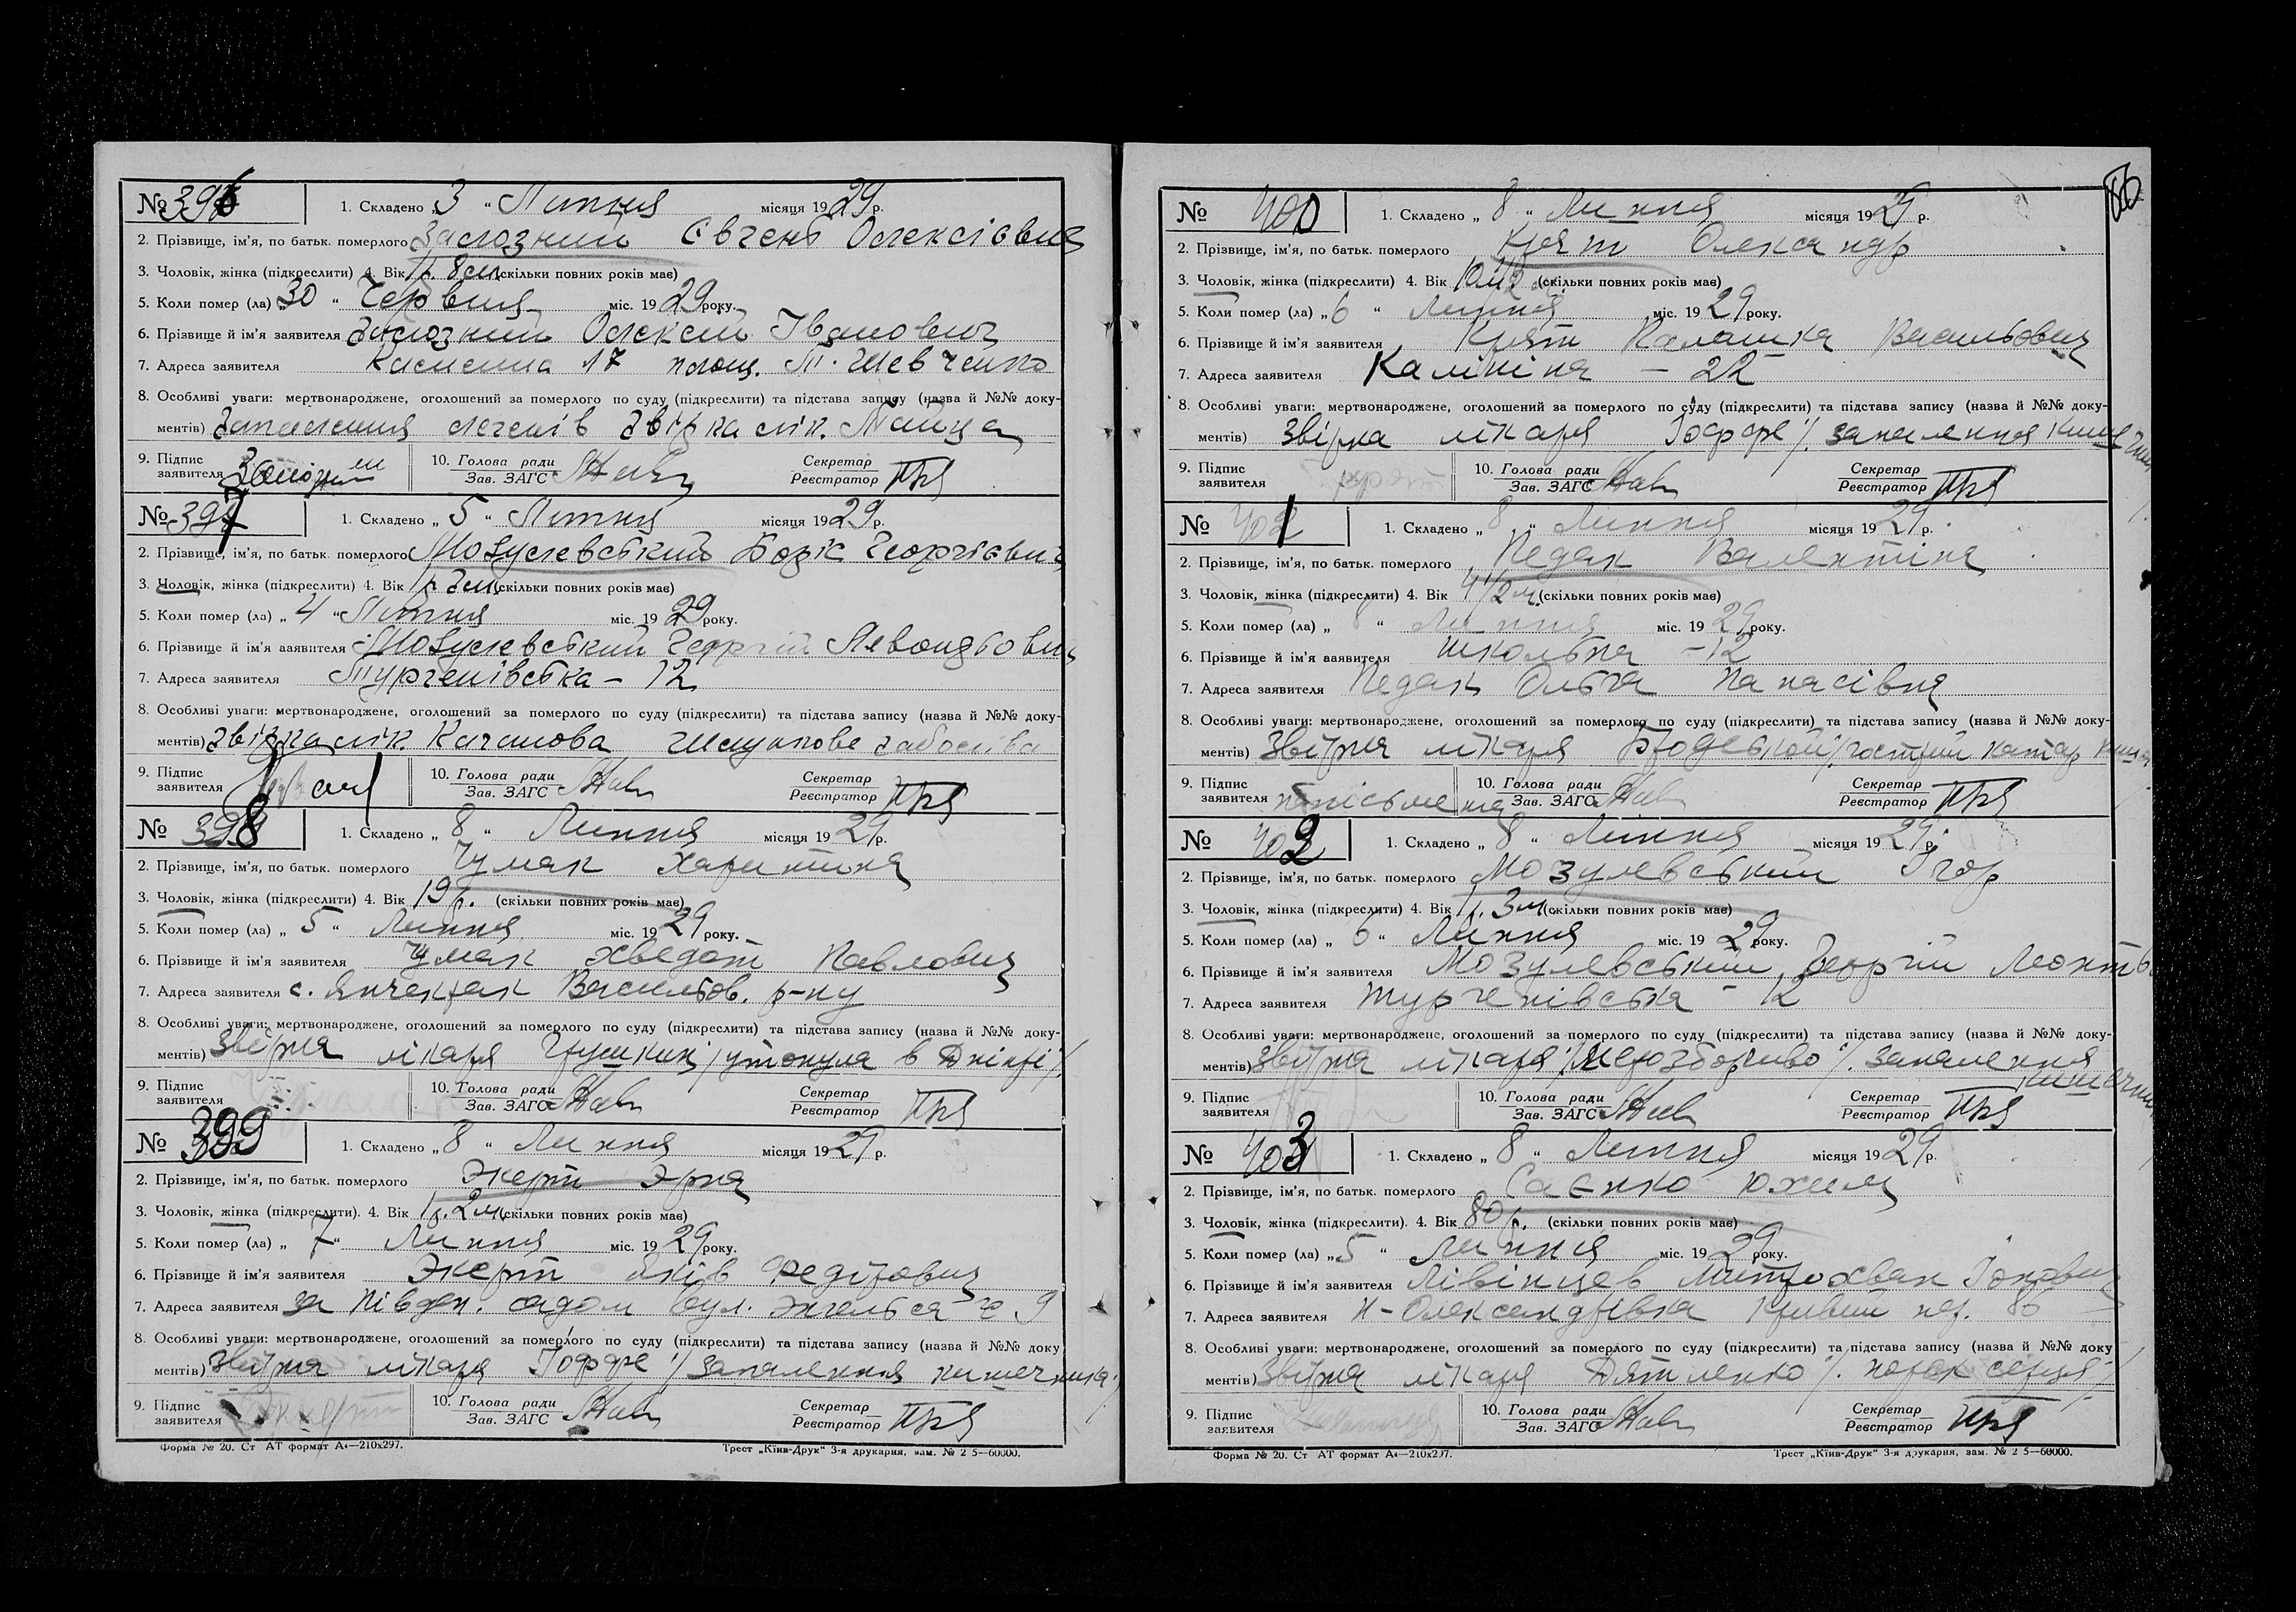 № 396 1. Складено „ 3 “ Липня місяця 1929 р.
2. Прізвище, ім'я, по батьк. померлого Євгень Олексієвич
3. Чоловік, жінка (підкреслити) 4. Вік 1 р. 8 м. (скільки повних років має)
5. Коли помер (ла) 30 “ Червня міс. 1929 року.
6. Прізвище й ім'я заявителя Олексій Іванович
7. Адреса заявителя 17 площ. Т. Шевченко
8. Особливі уваги: мертвонароджене, оголошений за померлого по суду (підкреслити) та підстава запису (назва й №№ доку-
ментів) Запалення легенів Звірка лік.
9. Підпис заявителя 10. Голова ради Зав. ЗАГС Секретар Реєстратор
№ 397 1. Складено „ 5 “ Липня місяця 1929 р.
2. Прізвище, ім'я, по батьк. померлого Мозулевський Борис Георгієвич
3. Чоловік, жінка (підкреслити) 4. Вік (скільки повних років має)
5. Коли помер (ла) „ 4 “ Липня міс. 1929 року.
6. Прізвище й ім'я заявителя Мозулевський Георгій
7. Адреса заявителя Тургенівська – 12
8. Особливі уваги: мертвонароджене, оголошений за померлого по суду (підкреслити) та підстава запису (назва й №№ доку-
ментів) Звірка лік. Качанова
9. Підпис заявителя 10. Голова ради Зав. ЗАГС Секретар Реєстратор
№ 398 1. Складено „ 8 “ Липня місяця 1929 р.
2. Прізвище, ім'я, по батьк. померлого Чумак Харитина
3. Чоловік, жінка (підкреслити) 4. Вік 19 р. (скільки повних років має)
5. Коли помер (ла) „ 5 “ Липня міс. 1929 року.
6. Прізвище й ім'я заявителя Чумак Хведот Павлович
7. Адреса заявителя с. Янчекрак Васильов. р-ну
8. Особливі уваги: мертвонароджене, оголошений за померлого по суду (підкреслити) та підстава запису (назва й №№ доку-
ментів) Звірка лікаря Грушкин /утонула в Дніпрі/
9. Підпис заявителя 10. Голова ради Зав. ЗАГС Секретар Реєстратор
№ 399 1. Складено „ 8 “ Липня місяця 1929 р.
2. Прізвище, ім'я, по батьк. померлого Экерт Эрна
3. Чоловік, жінка (підкреслити). 4. Вік 1 р. 2 м. (скільки повних років має)
5. Коли помер (ла) „ 7 “ Липня міс. 1929 року.
6. Прізвище й ім'я заявителя Экерт Яків
7. Адреса заявителя за Півден. садом вул. Энгельса 9
8. Особливі уваги: мертвонароджене, оголошений за померлого по суду (підкреслити) та підстава запису (назва й №№ доку
ментів) Звірка лікаря Гофре /запалення кишечника/
9. Підпис заявителя 10. Голова ради Зав. ЗАГС Секретар Реєстратор
Форма № 20. Ст АТ формат А4—210x297. Трест „Київ-Друк“ 3-я друкарня, зам. № 2 5—60000.
№ 400 1. Складено „ 8 “ Липня місяця 1929 р.
2. Прізвище, ім'я, по батьк. померлого Крят Олександр
3. Чоловік, жінка (підкреслити) 4. Вік (скільки повних років має)
5. Коли помер (ла) „ 6 “ Липня міс. 1929 року.
6. Прізвище й ім'я заявителя Крят Васильович
7. Адреса заявителя Калініна – 22
8. Особливі уваги: мертвонароджене, оголошений за померлого по суду (підкреслити) та підстава запису (назва й №№ доку-
ментів) Звірка лікаря Гофре / запалення кишечник
9. Підпис заявителя 10. Голова ради Зав. ЗАГС Секретар Реєстратор
№ 401 1. Складено „ 8 “ Липня місяця 1929 р.
2. Прізвище, ім'я, по батьк. померлого Педак Валентіна
3. Чоловік, жінка (підкреслити) 4. Вік 4 1/2 м. (скільки повних років має)
5. Коли помер (ла) „ 8 “ Липня міс. 1929 року.
6. Прізвище й ім'я заявителя Школьна – 12
7. Адреса заявителя Педак Ольга Панасівна
8. Особливі уваги: мертвонароджене, оголошений за померлого по суду (підкреслити) та підстава запису (назва й №№ доку-
ментів) Звірка лікаря Бродської / гострий катар
9. Підпис заявителя 10. Голова ради Зав. ЗАГС Секретар Реєстратор
№ 402 1. Складено „ 8 “ Липня місяця 1929 р.
2. Прізвище, ім'я, по батьк. померлого Мозулевський Ігор
3. Чоловік, жінка (підкреслити) 4. Вік 1 р. 3 м. (скільки повних років має)
5. Коли помер (ла) „ 6 “ Липня міс. 1929 року.
6. Прізвище й ім'я заявителя Мозулевський Георгій Леонть
7. Адреса заявителя Тургенівська – 12
8. Особливі уваги: мертвонароджене, оголошений за померлого по суду (підкреслити) та підстава запису (назва й №№ доку-
ментів) Звірка лікаря /нерозборчиво/. запалення
кишечник
9. Підпис заявителя 10. Голова ради Зав. ЗАГС Секретар Реєстратор
№ 403 1. Складено „ 8 “ Липня місяця 1929 р.
2. Прізвище, ім'я, по батьк. померлого Саєнко Юхим
3. Чоловік, жінка (підкреслити). 4. Вік 80 р. (скільки повних років має)
5. Коли помер (ла) „ 5 “ Липня міс. 1929 року.
6. Прізвище й ім'я заявителя Лівінцев Митрохван
7. Адреса заявителя Н-Олександрівка Кривий пер.
8. Особливі уваги: мертвонароджене, оголошений за померлого по суду (підкреслити) та підстава запису (назва й №№ доку
ментів) Звірка лікаря Дятленко /. порок серця/
9. Підпис заявителя 10. Голова ради Зав. ЗАГС Секретар Реєстратор
Форма № 20. Ст АТ формат А4—210x297. Трест „Київ-Друк“ 3-я друкарня, зам. № 2 5—60000.